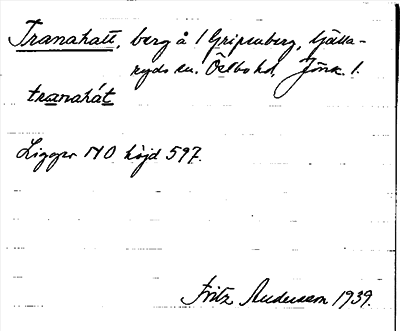 Tranahatt, berg å 1 Gripenberg, Bjälla-
ryds sn. Ö.elbo hd, Jönk. l.
tranahát
Ligger NO höjd 597.
Fritz Andersson 1939.